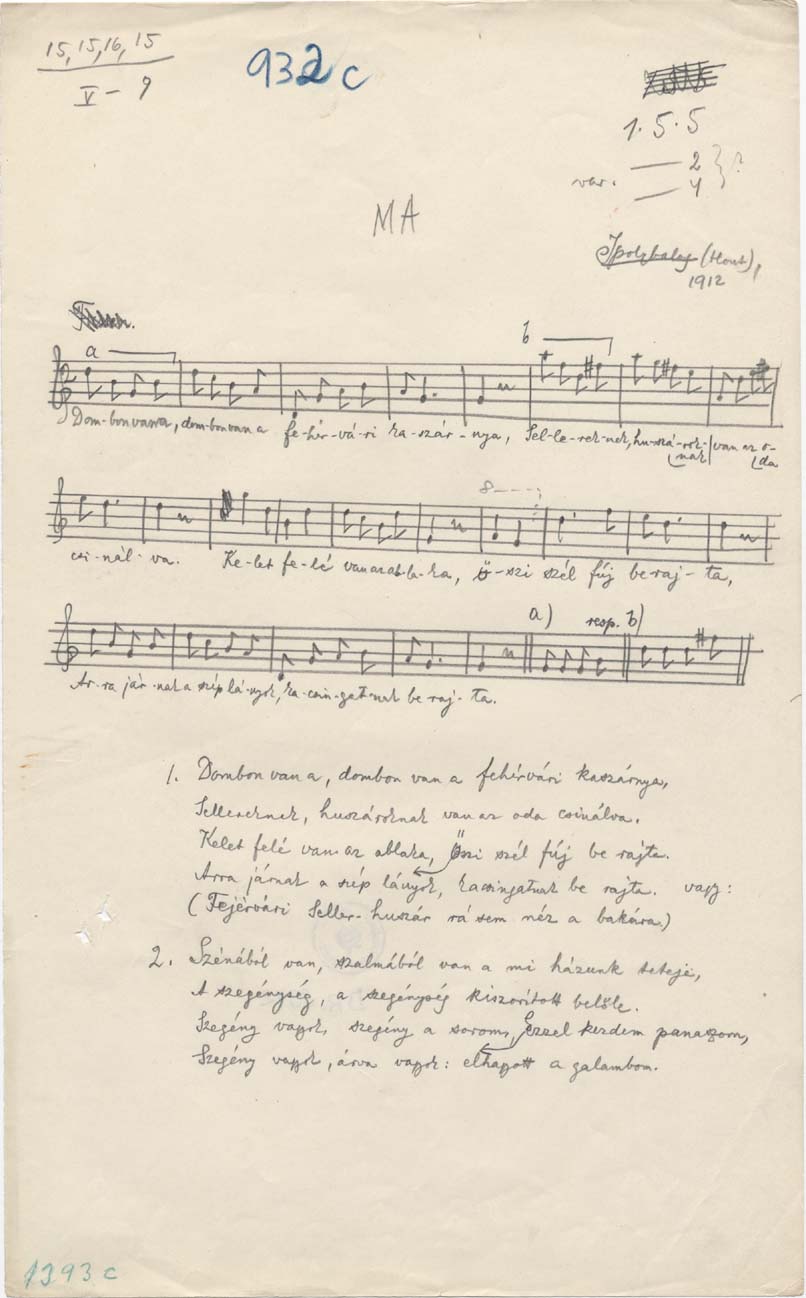 15, 15, 16, 15
V - 9
932 c
1.5.5
2
var. 4 ?
MA
Ipolybalog (Hont),
1912
a
b
Dom-bon van a, dom-bon van a fe-hér-vá-ri ka-szár-nya, Sel-le-rek-nek, hu-szá-rok-nak van az o-da
8
csi-nál-va. Ke-let fe-lé van az ab-la-ka, ő-szi szél fúj be raj-ta,
a) resp. b)
Ar-ra jár-nak a szép lá-nyok, ka-csin-gat-nak be raj-ta.
1. Dombon van a, dombon van a fehérvári kaszárnya,
Sellereknek, huszároknak van az oda csinálva.
Kelet felé van az ablaka, Őszi szél fúj be rajta.
Arra járnak a szép lányok, kacsingatnak be rajta. vagy:
(Fejérvári Seller-huszár rá sem néz a bakára.)
2. Szénából van, szalmából van a mi házunk teteje,
A szegénység, a szegénység kiszorított belőle.
Szegény vagyok, szegény a sorom, Ezzel kezdem panaszom,
Szegény vagyok, árva vagyok: elhagyott a galambom.
1393 c